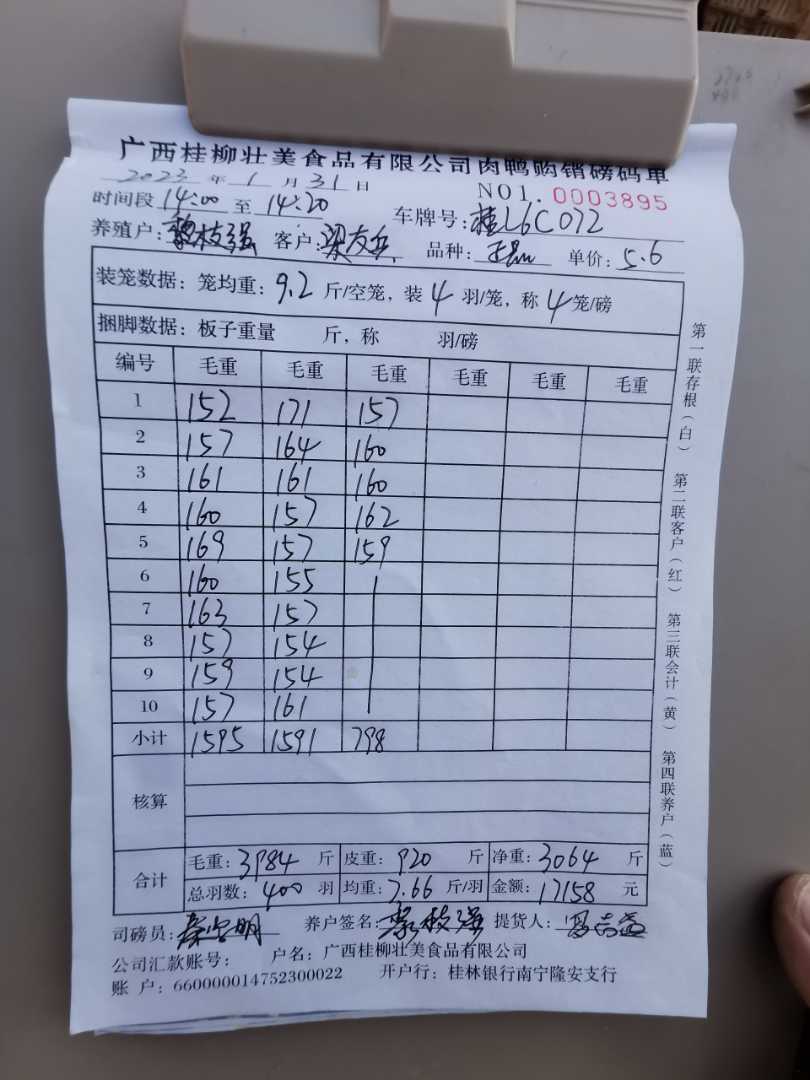 广西桂柳壮美食品有限公司肉鸭购销磅码单
2023 年 1 月 31 日 NO1. 0003895
时间段 14:00 至 14:20 车牌号: 桂L6C072
养殖户: 黎枝强 客户: 梁友 品种: 单价: 5.6
装笼数据: 笼均重: 9.2 斤/空笼, 装 4 羽/笼, 称 4 笼/磅
捆脚数据: 板子重量 斤, 称 羽/磅
编号 毛重 毛重 毛重 毛重 毛重 毛重
1 152 171 157
2 157 164 160
3 161 161 160
4 160 157 162
5 169 157 159
6 160 155
7 163 157
8 157 154
9 159 154
10 157 161
小计 1595 1591 798
核算
合计 毛重: 3984 斤 皮重: 920 斤 净重: 3064 斤
总羽数: 400 羽 均重: 7.66 斤/羽 金额: 17158 元
司磅员: 养户签名: 黎枝强 提货人:
公司汇款账号: 户名: 广西桂柳壮美食品有限公司
账 户: 660000014752300022 开户行: 桂林银行南宁隆安支行
第一联存根(白) 第二联客户(红) 第三联会计(黄) 第四联养户(蓝)